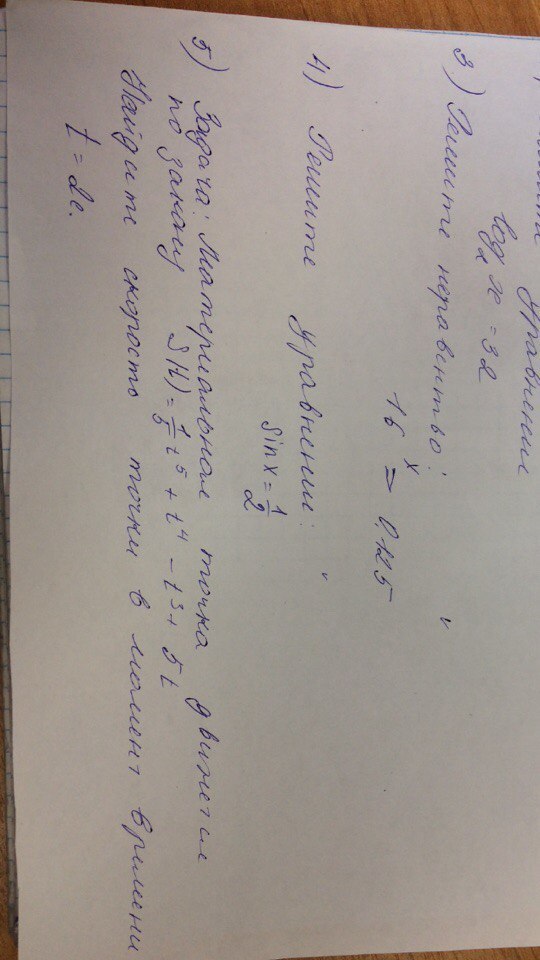 Уравнении
log₂ x = 32
3) Решите неравентво:
16ˣ ⩾ 0,125
4) Решите уравнении:
sin x = 1/2
5) Задача: Материальная точка движется
по закону S(t) = 1/5 t⁵ + t⁴ - t³ + 5t
Найдите скорость точки в момент времени
t = 2с.